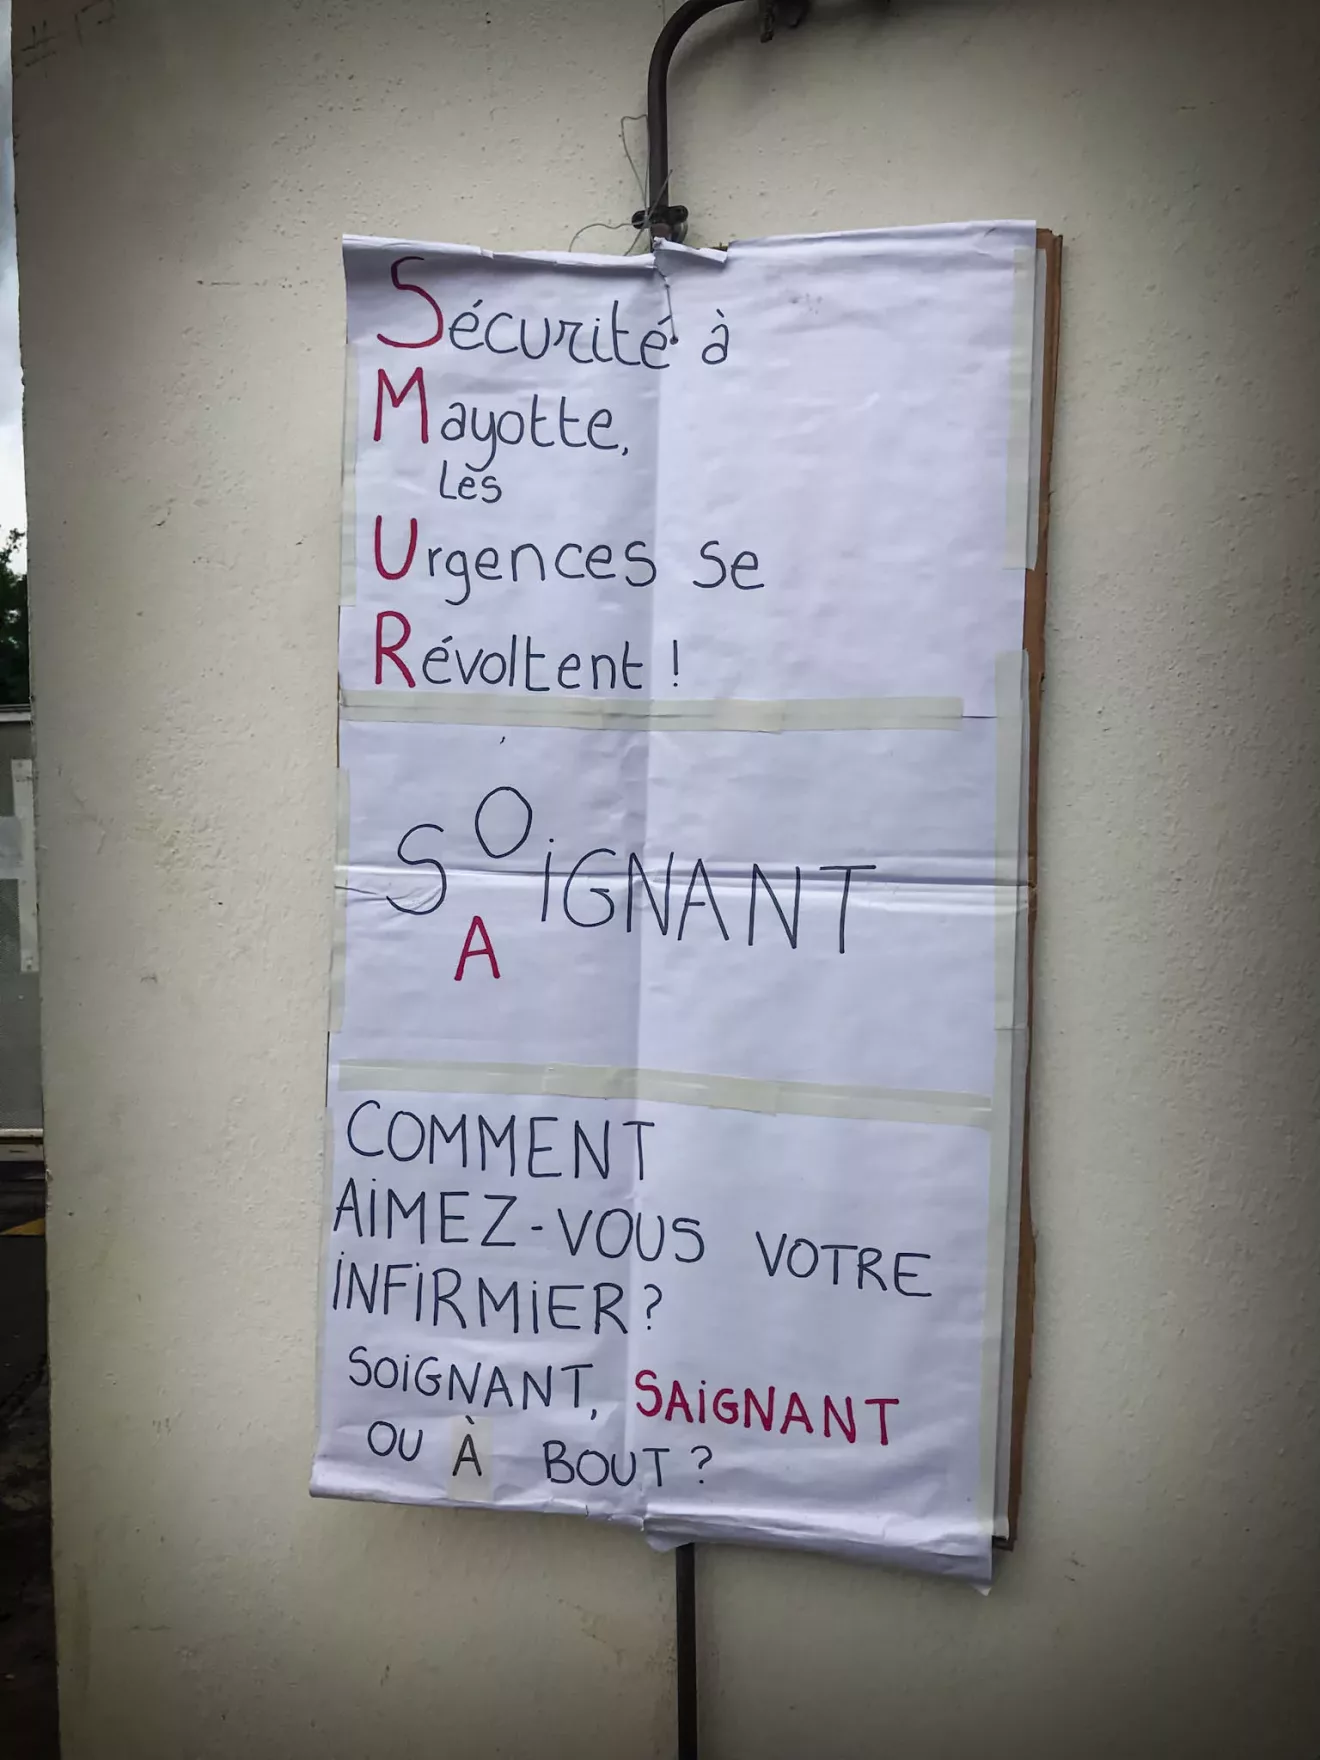 Sécurité à
Mayotte,
Les
Urgences se
Révoltent !
SOiGNANT
A
COMMENT
AiMEZ-VOUS VOTRE
iNFiRMiER ?
SOiGNANT, SAiGNANT
OU À BOUT ?